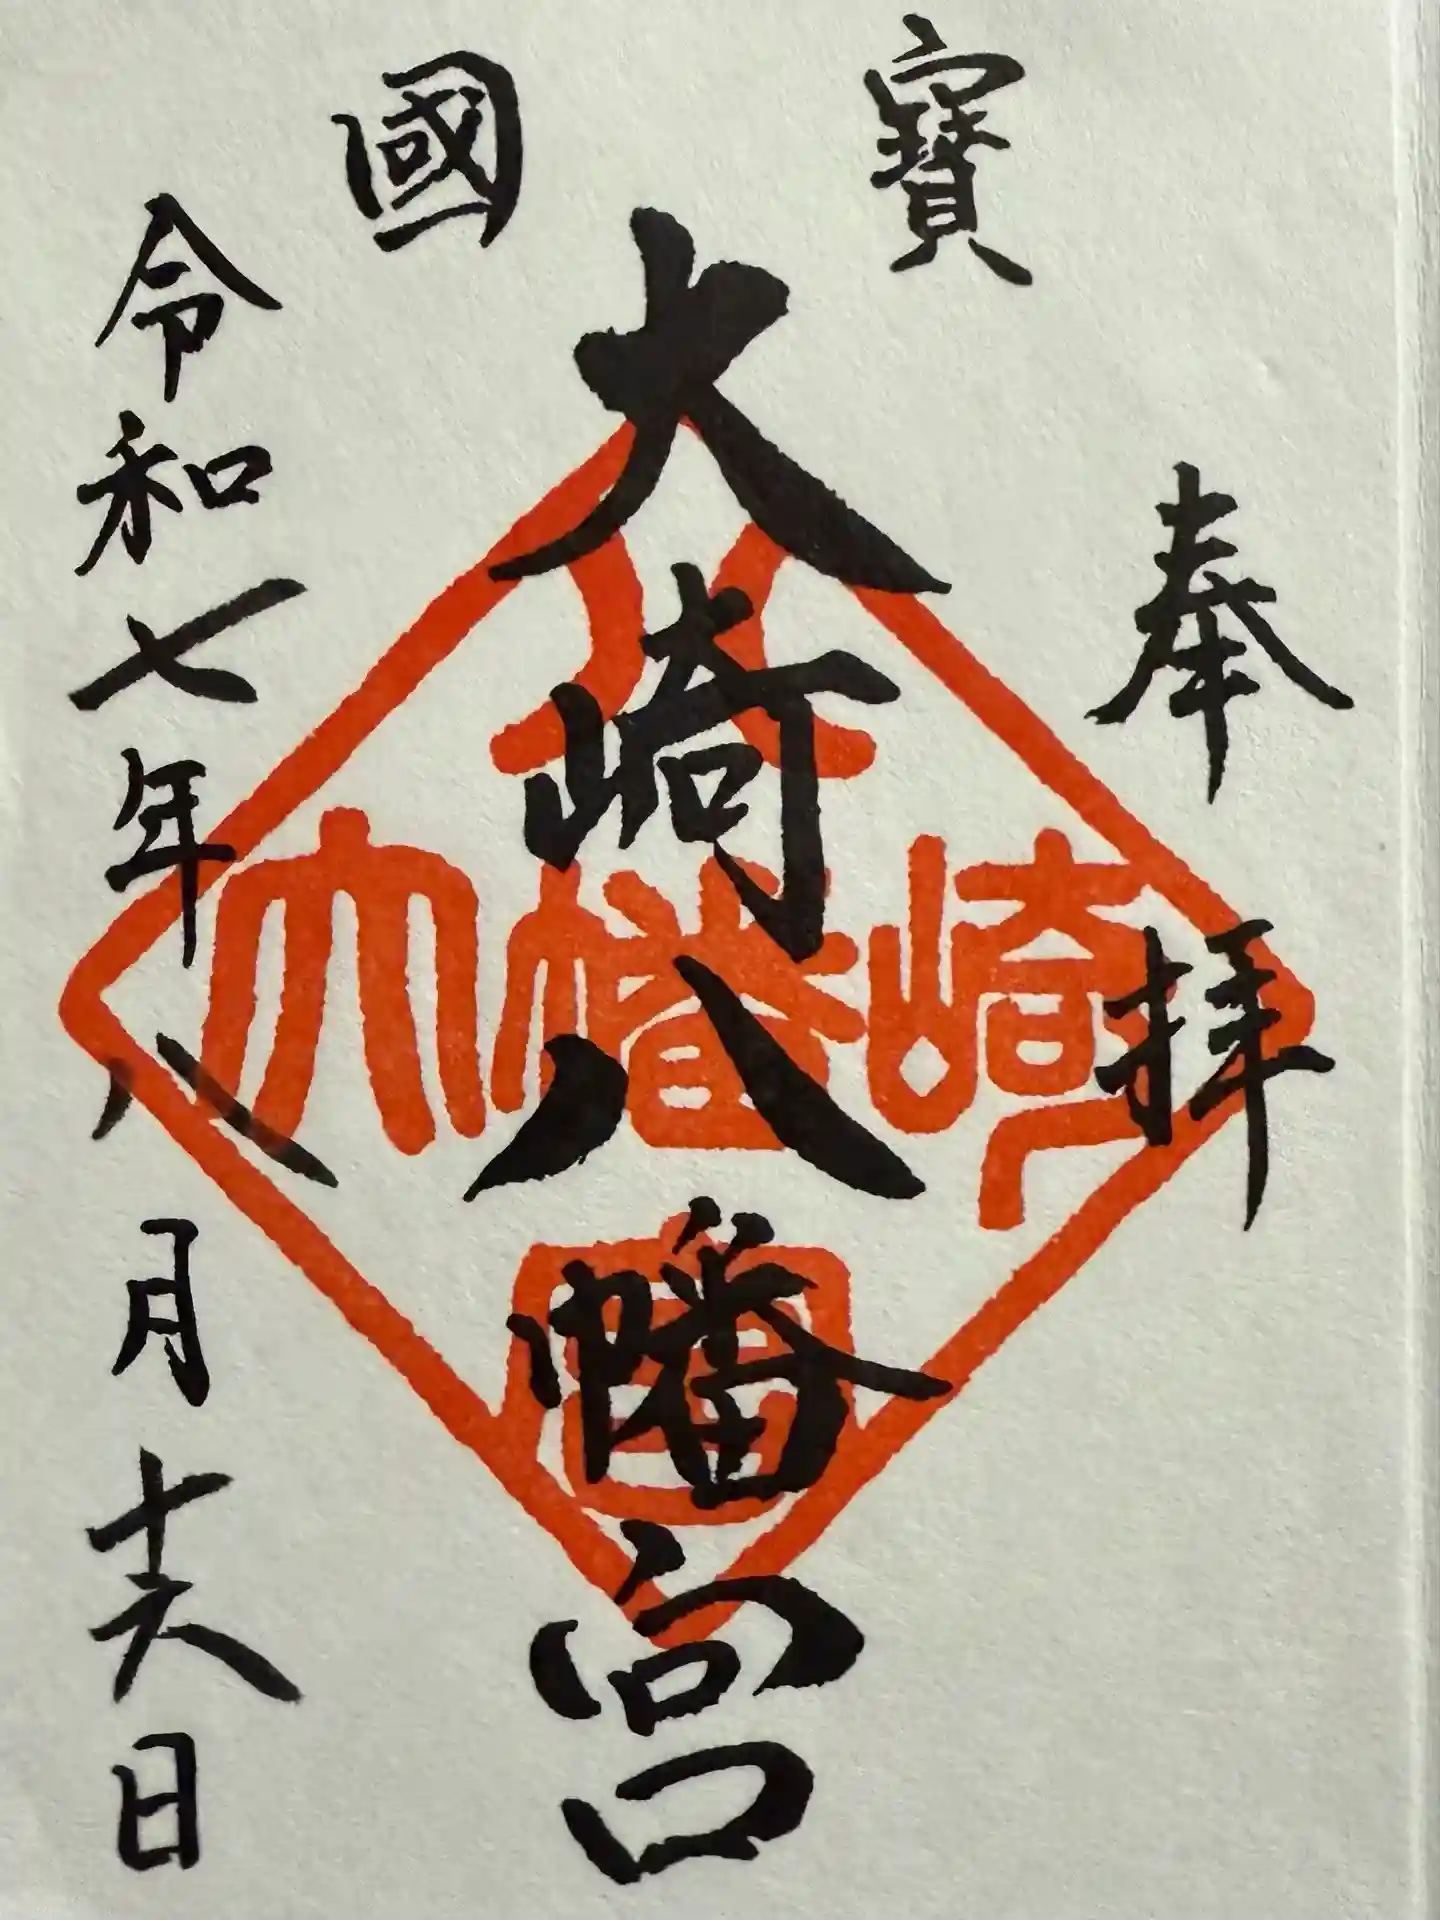 奉拝
寶
國
大崎八幡宮
令和七年八月十六日
大崎八幡宮